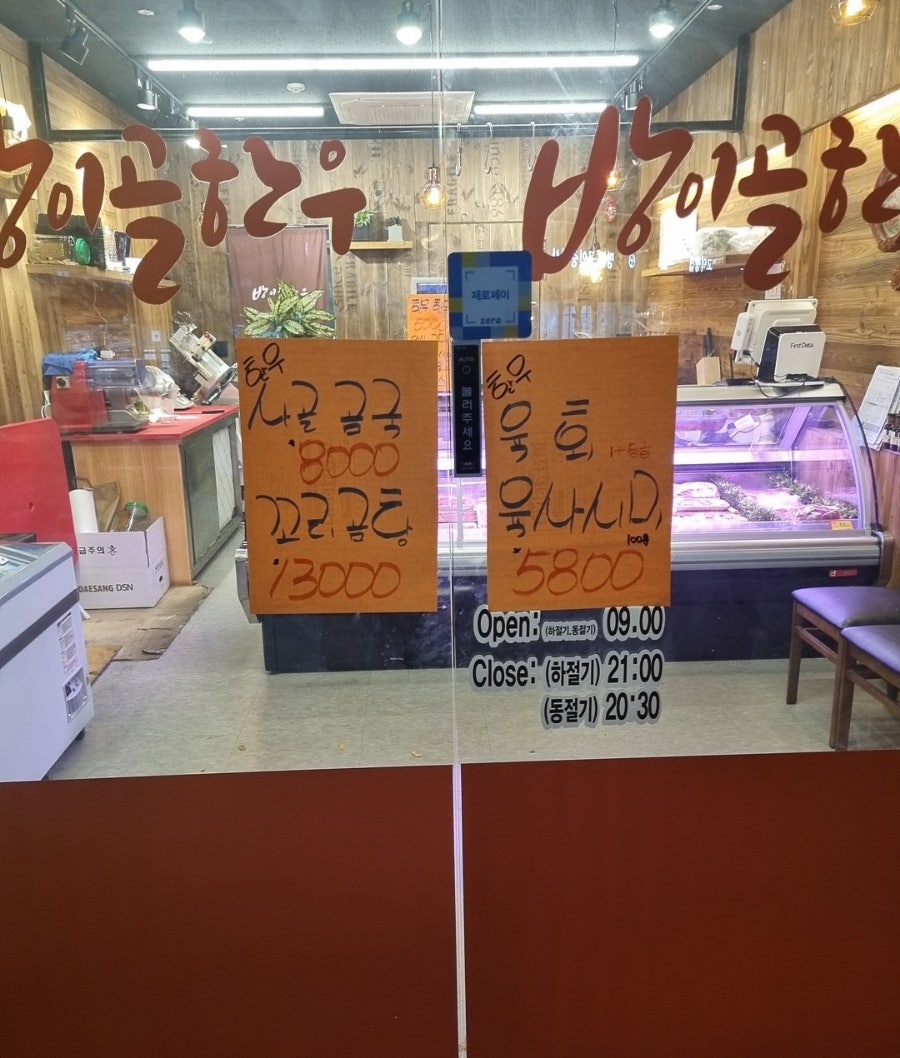 방이골한우
방이골한
방이골
제로페이
zero
AUTO
눌러주세요
First Data
한우
사골 곰국
8000
꼬리곰탕
13000
한우
육회, 1+등급
육사시미,
100g
5800
DAESANG DSN
Open: (하절기.동절기) 09:00
Close: (하절기) 21:00
(동절기) 20:30